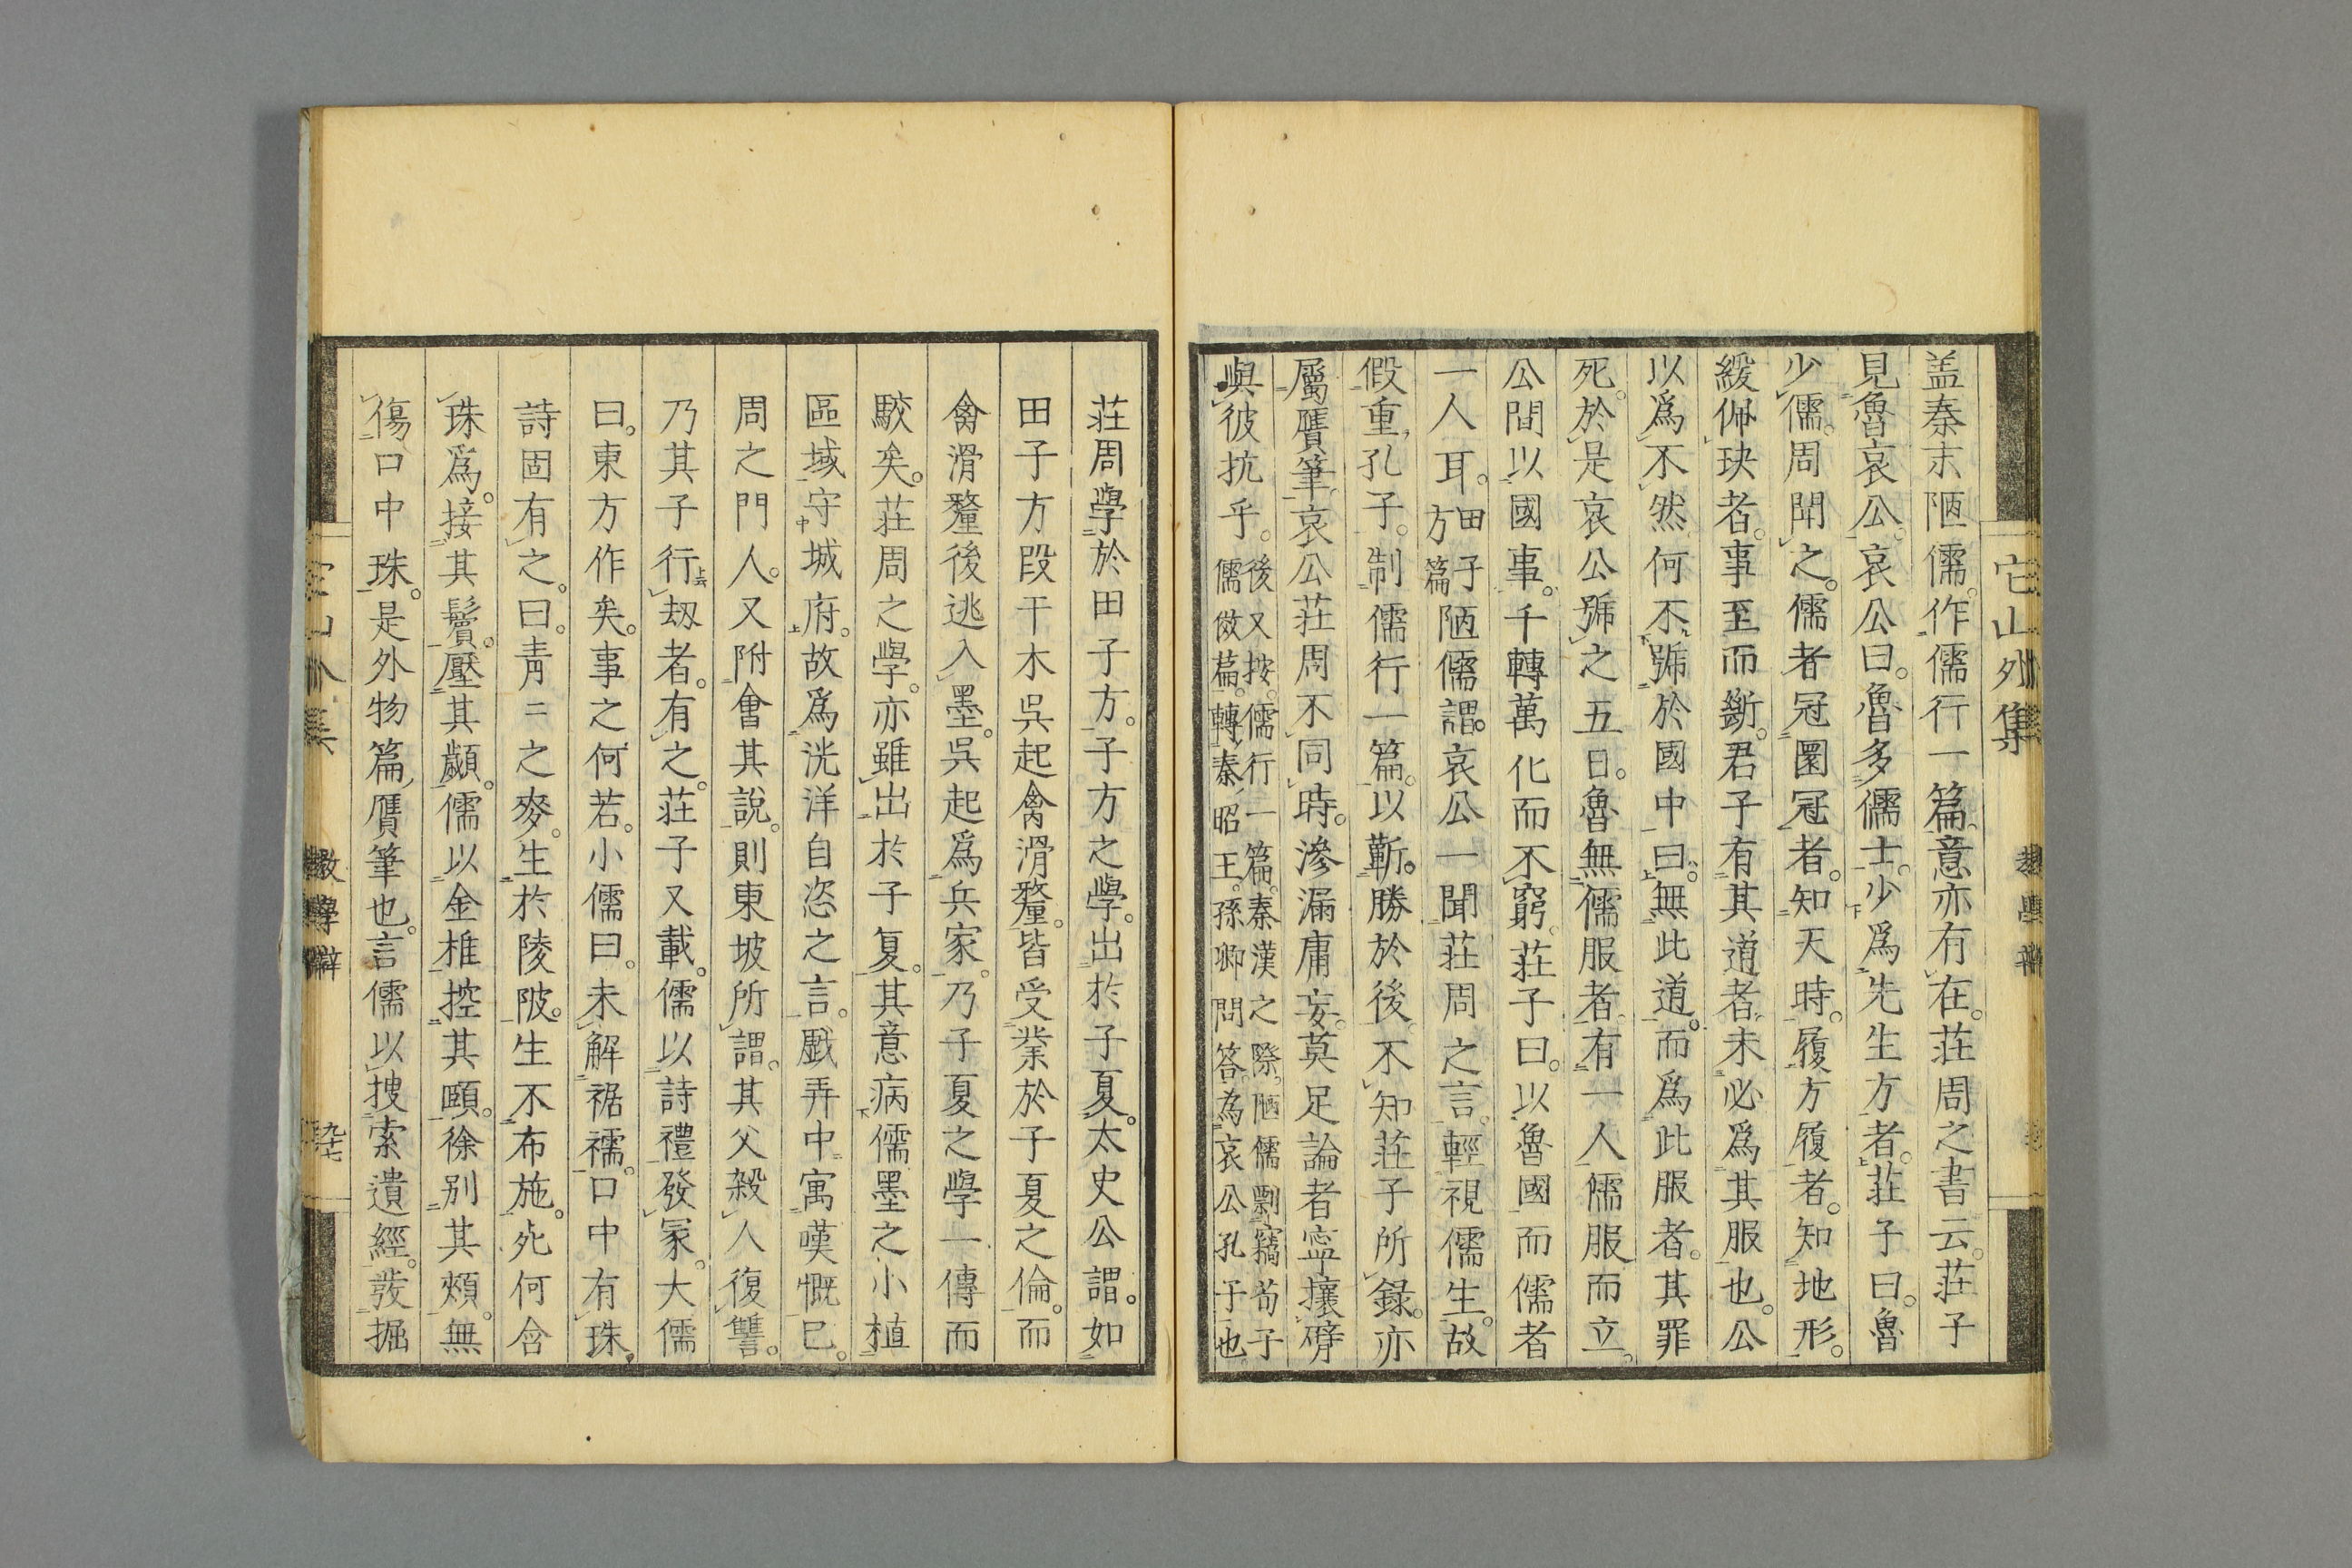 它山外集
盖秦末陋儒作儒行一篇意亦有在莊周之書云莊子
見魯哀公哀公曰魯多儒士少爲先生方者莊子曰魯
少儒周聞之儒者冠圜冠者知天時履方履者知地形
緩佩玦者事至而斷君子有其道者未必爲其服也公
以爲不然何不號於國中曰無此道而爲此服者其罪
死於是哀公號之五日魯無儒服者有一人儒服而立
公問以國事千轉萬化而不窮莊子曰以魯國而儒者
一人耳田子方篇陋儒謂哀公一聞莊周之言輕視儒生故
假重孔子制儒行一篇以蘄勝於後不知莊子所錄亦
屬贗筆哀公莊周不同時滲漏庸妄莫足論者寧攘臂
與彼抗乎後又按儒行一篇秦漢之際陋儒剽竊荀子
儒效篇轉秦昭王孫卿問答為哀公孔子也
莊周學於田子方子方之學出於子夏太史公謂如
田子方段干木吳起禽滑釐皆受業於子夏之倫而
禽滑釐後逃入墨吳起爲兵家乃子夏之學一傳而
駁矣莊周之學亦雖出於子夏其意病儒墨之小植
區域守城府故爲洸洋自恣之言戲弄中寓嘆慨已
周之門人又附會其說則東坡所謂其父殺人復讐
乃其子行劫者有之莊子又載儒以詩禮發冢大儒
曰東方作矣事之何若小儒曰未解裙襦口中有珠
詩固有之曰青二之麥生於陵陂生不布施死何含
珠爲接其鬢壓其顪儒以金椎控其頤徐別其頰無
傷口中珠是外物篇贗筆也言儒以搜索遺經發掘
教學辯
九十七